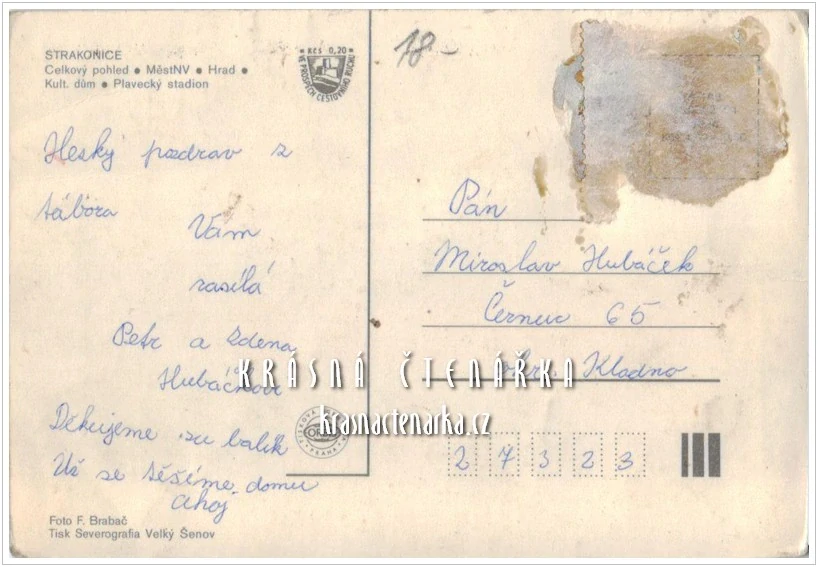 STRAKONICE
Celkový pohled • MěstNV • Hrad •
Kult. dům • Plavecký stadion
KČS 0,20
VE PROSPĚCH CESTOVNÍHO RUCHU
18-
Heský pozdrav z
tábora
Vám
zasílá
Petr a Zdena
Hubáčkovi
Děkujeme za balík
Už se těšíme domu
Ahoj
Foto F. Brabač
Tisk Severografia Velký Šenov
ORBIS
PRAHA
Pán
Miroslav Hubáček
Černuc 65
okr. Kladno
27323
KRÁSNÁ ČTENÁŘKA
krasnactenarka.cz